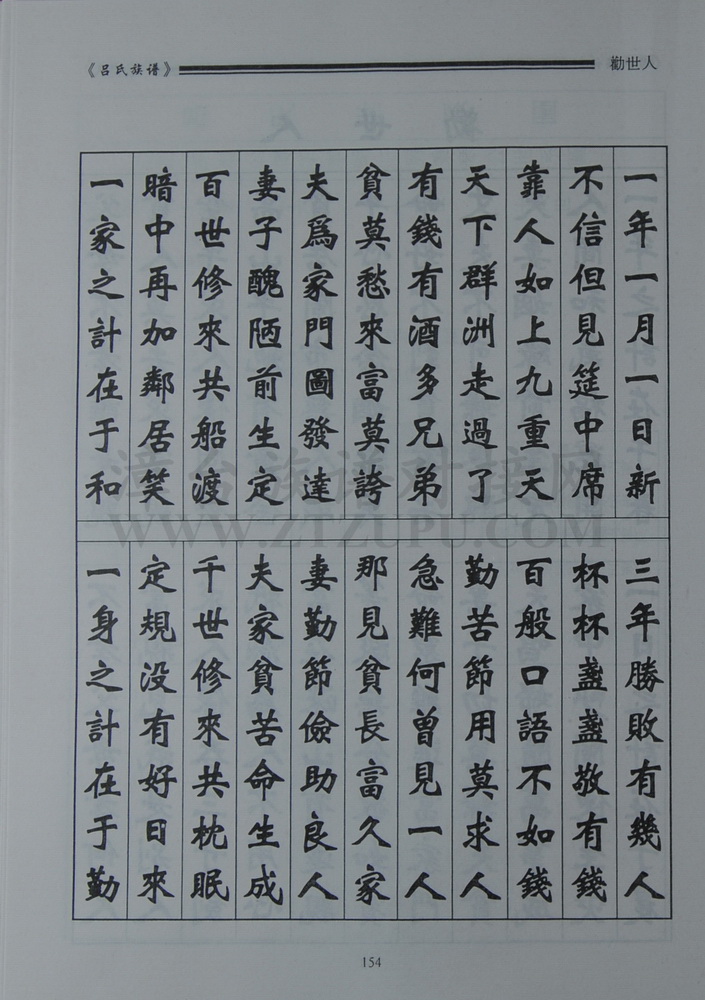 《吕氏族谱》
勸世人
一年一月一日新
三年勝敗有幾人
不信但見筵中席
杯杯盞盞敬有錢
靠人如上九重天
百般口語不如錢
天下群洲走過了
勤苦節用莫求人
有錢有酒多兄弟
急難何曾見一人
貧莫愁來富莫誇
那見貧長富久家
夫爲家門圖發達
妻勤節儉助良人
妻子醜陋前生定
夫家貧苦命生成
百世修來共船渡
千世修來共枕眠
暗中再加鄰居笑
定規没有好日來
一家之計在于和
一身之計在于勤
漳台族谱对接网
WWW.ZTZUPU.COM
154